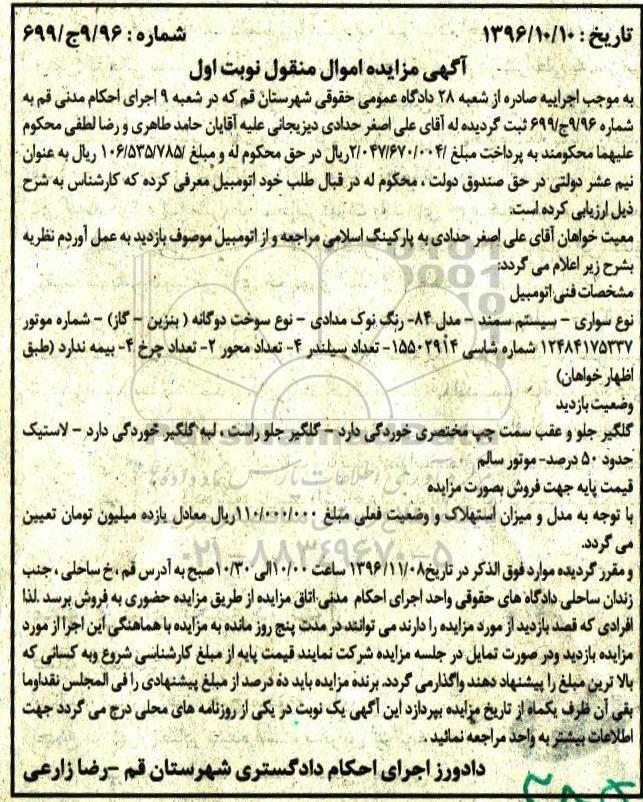 تاریخ : ۱۳۹۶/۱۰/۱۰
شماره : ۹/۹۶ج/۶۹۹
آگهی مزایده اموال منقول نوبت اول
به موجب اجراییه صادره از شعبه ۲۸ دادگاه عمومی حقوقی شهرستان قم که در شعبه ۹ اجرای احکام مدنی قم به
شماره ۹/۹۶ج/۶۹۹ ثبت گردیده له آقای علی اصغر حدادی دیزیجانی علیه آقایان حامد طاهری و رضا لطفی محکوم
علیهما محکومند به پرداخت مبلغ /۲/۰۴۷/۶۷۰/۰۰۴ریال در حق محکوم له و مبلغ /۱۰۶/۵۳۵/۷۸۵ ریال به عنوان
نیم عشر دولتی در حق صندوق دولت ، محکوم له در قبال طلب خود اتومبیل معرفی کرده که کارشناس به شرح
ذیل ارزیابی کرده است.
معیت خواهان آقای علی اصغر حدادی به پارکینگ اسلامی مراجعه و از اتومبیل موصوف بازدید به عمل آوردم نظریه
بشرح زیر اعلام می گردد:
مشخصات فنی اتومبیل
نوع سواری – سیستم سمند – مدل ۸۴- رنگ نوک مدادی – نوع سوخت دوگانه ( بنزین – گاز) – شماره موتور
۱۲۴۸۴۱۷۵۳۳۷ شماره شاسی ۱۵۵۰۲۹۱۴- تعداد سیلندر ۴- تعداد محور ۲- تعداد چرخ ۴- بیمه ندارد (طبق
اظهار خواهان)
وضعیت بازدید
گلگیر جلو و عقب سمت چپ مختصری خوردگی دارد – گلگیر جلو راست ، لبه گلگیر خوردگی دارد – لاستیک
حدود ۵۰ درصد- موتور سالم
قیمت پایه جهت فروش بصورت مزایده
با توجه به مدل و میزان استهلاک و وضعیت فعلی مبلغ ۱۱۰/۰۰۰/۰۰۰ریال معادل یازده میلیون تومان تعیین
می گردد.
۰۲۱-۸۸۳۴۹۶۷۰-۵
و مقرر گردیده موارد فوق الذکر در تاریخ ۱۳۹۶/۱۱/۰۸ ساعت ۱۰/۰۰الی ۱۰/۳۰صبح به آدرس قم ، خ ساحلی ، جنب
زندان ساحلی دادگاه های حقوقی واحد اجرای احکام مدنی اتاق مزایده از طریق مزایده حضوری به فروش برسد .لذا
افرادی که قصد بازدید از مورد مزایده را دارند می توانند در مدت پنج روز مانده به مزایده با هماهنگی این اجرا از مورد
مزایده بازدید ودر صورت تمایل در جلسه مزایده شرکت نمایند قیمت پایه از مبلغ کارشناسی شروع وبه کسانی که
بالا ترین مبلغ را پیشنهاد دهند واگذارمی گردد. برنده مزایده باید ده درصد از مبلغ پیشنهادی را فی المجلس نقداوما
بقی آن ظرف یکماه از تاریخ مزایده بپردازد این آگهی یک نوبت در یکی از روزنامه های محلی درج می گردد جهت
اطلاعات بیشتر به واحد مراجعه نمائید .
دادورز اجرای احکام دادگستری شهرستان قم –رضا زارعی